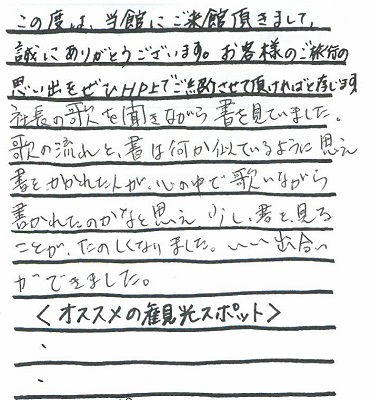 この度は、当館にご来館頂きまして、
誠にありがとうございます。お客様のご旅行の
思い出をぜひHP上でご紹介させて頂ければと存じます
社長の歌を聞きながら書を見ていました。
歌の流れと、書は何か似ているように思え
書をかかれた人が、心の中で歌いながら
書かれたのかなと思え 少し、書を見る
ことが、たのしくなりました。いい出合い
ができました。
＜オススメの観光スポット＞
・
・